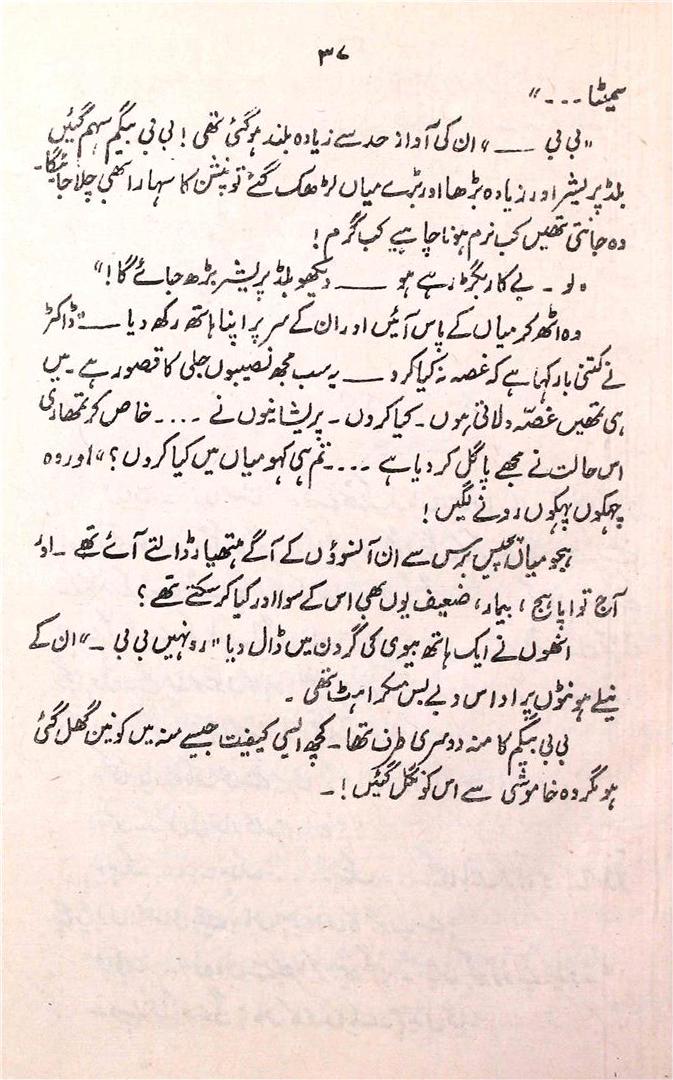 ۳۷
سمیٹا ۔۔۔"
"بی بی ——" ان کی آواز حد سے زیادہ بلند ہو گئی تھی! بی بی بیگم سہم گئیں
بلڈ پریشر اور زیادہ بڑھا اور بڑے میاں لڑھک گئے تو پنشن کا سہارا بھی چلا جائیگا۔
وہ جانتی تھیں کب نرم ہونا چاہیے کب گرم!
"لو ۔ بے کار بگڑ رہے ہو —— دیکھو بلڈ پریشر بڑھ جائے گا!"
وہ اٹھ کر میاں کے پاس آئیں اور ان کے سر پر اپنا ہاتھ رکھ دیا —— "ڈاکٹر
نے کتنی بار کہا ہے کہ غصہ نہ کیا کرو —— یہ سب مجھ نصیبوں جلی کا قصور ہے ۔ میں
ہی تمھیں غصّہ دلاتی ہوں ۔ کیا کروں ۔ پریشانیوں نے ۔۔۔۔ خاص کر تمھاری
اس حالت نے مجھے پاگل کر دیا ہے ۔۔۔۔ تم ہی کہو میاں میں کیا کروں؟" اور وہ
پہکوں پہکوں رونے لگیں!
ہجو میاں پچیس برس سے ان آنسوؤں کے آگے ہتھیار ڈالتے آئے تھے ۔ اور
آج تو اپاہج، بیمار، ضعیف یوں بھی اس کے سوا اور کیا کر سکتے تھے؟
انھوں نے ایک ہاتھ بیوی کی گردن میں ڈال دیا "رو نہیں بی بی ۔" ان کے
نیلے ہونٹوں پر اداس و بے بس مسکراہٹ تھی ۔
بی بی بیگم کا منہ دوسری طرف تھا ۔ کچھ ایسی کیفیت جیسے منہ میں کونین گھل گئی
ہو مگر وہ خاموشی سے اس کو نگل گئیں! ۔